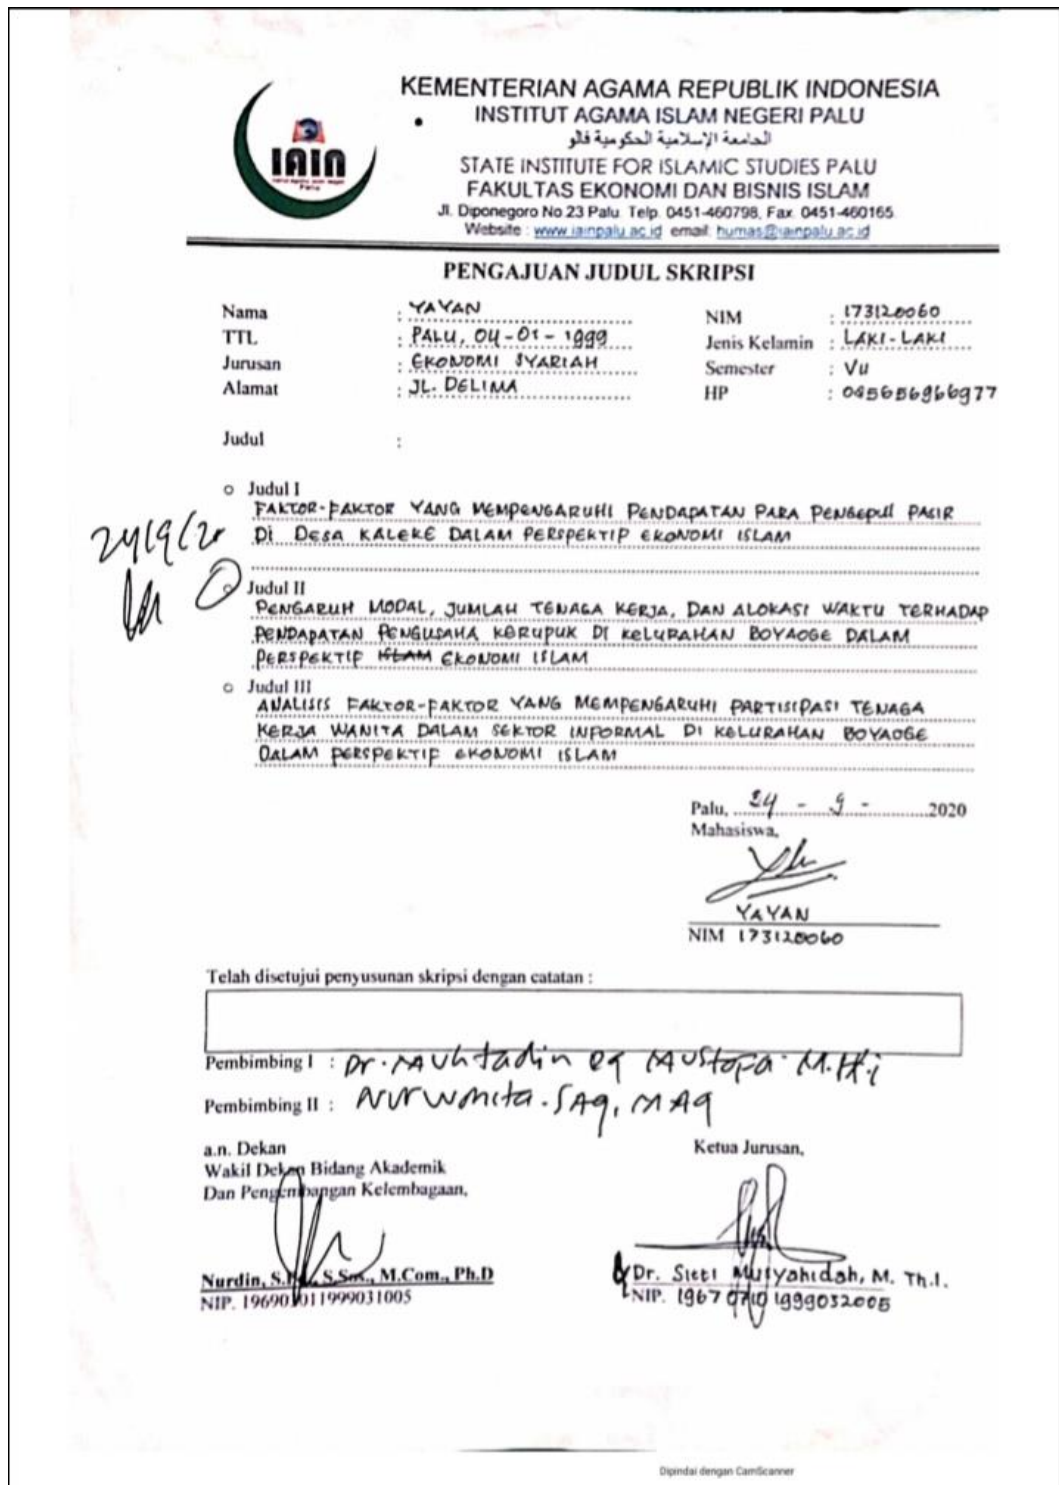 KEMENTERIAN AGAMA REPUBLIK INDONESIA
INSTITUT AGAMA ISLAM NEGERI PALU
الجامعة الإسلامية الحكومية فالو
STATE INSTITUTE FOR ISLAMIC STUDIES PALU
FAKULTAS EKONOMI DAN BISNIS ISLAM
Jl. Diponegoro No 23 Palu. Telp. 0451-460798, Fax. 0451-460165.
Website : www.iainpalu.ac.id email: humas@iainpalu.ac.id
IAIN
Palu
PENGAJUAN JUDUL SKRIPSI
Nama : YAYAN NIM : 173120060
TTL : PALU, 04-01-1999 Jenis Kelamin : LAKI-LAKI
Jurusan : EKONOMI SYARIAH Semester : VII
Alamat : JL. DELIMA HP :
Judul :
Judul I
FAKTOR-FAKTOR YANG MEMPENGARUHI PENDAPATAN PARA PENGEPUL PASIR
DI DESA KALEKE DALAM PERSPEKTIF EKONOMI ISLAM
24/9/20
Judul II
PENGARUH MODAL, JUMLAH TENAGA KERJA, DAN ALOKASI WAKTU TERHADAP
PENDAPATAN PENGUSAHA KERUPUK DI KELURAHAN BOYAOGE DALAM
PERSPEKTIF ISLAM EKONOMI ISLAM
Judul III
ANALISIS FAKTOR-FAKTOR YANG MEMPENGARUHI PARTISIPASI TENAGA
KERJA WANITA DALAM SEKTOR INFORMAL DI KELURAHAN BOYAOGE
DALAM PERSPEKTIF EKONOMI ISLAM
Palu, 24 - 9 - 2020
Mahasiswa,
YAYAN
NIM 173120060
Telah disetujui penyusunan skripsi dengan catatan :
Pembimbing I : Dr. Muhtadin Mustofa M.H.i
Pembimbing II : Nurwanita. S.Ag, M.Ag
a.n. Dekan
Wakil Dekan Bidang Akademik
Dan Pengembangan Kelembagaan,
Nurdin, S.Sos., M.Com., Ph.D
NIP. 196903011999031005
Ketua Jurusan,
Dr. Sitti Musyahidah, M. Th.I.
NIP. 19670710 1999032005
Dipindai dengan CamScanner